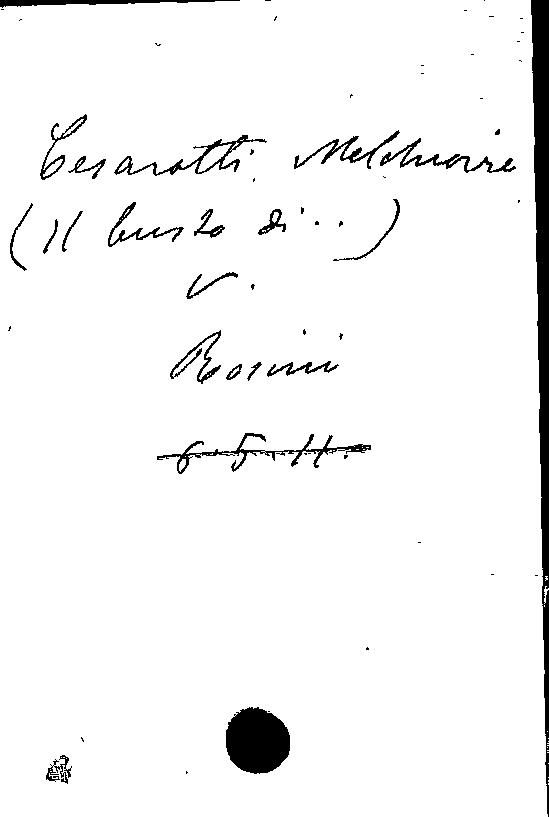 Cesarotti Melchiorre
(Il busto di...)
V.
Rosini
6.5.11.